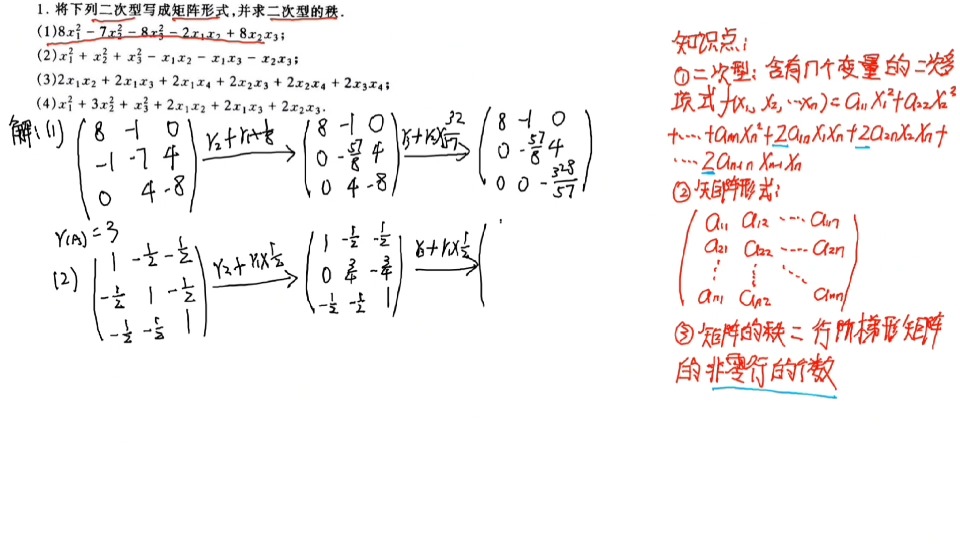 1. 将下列二次型写成矩阵形式,并求二次型的秩.
(1)8x₁² − 7x₂² − 8x₃² − 2x₁x₂ + 8x₂x₃;
(2)x₁² + x₂² + x₃² − x₁x₂ − x₁x₃ − x₂x₃;
(3)2x₁x₂ + 2x₁x₃ + 2x₁x₄ + 2x₂x₃ + 2x₂x₄ + 2x₃x₄;
(4)x₁² + 3x₂² + x₃² + 2x₁x₂ + 2x₁x₃ + 2x₂x₃.
解:(1)
8 -1 0
-1 -7 4
0 4 -8
r₂+r₁×1/8
8 -1 0
0 -57/8 4
0 4 -8
r₃+r₂×32/57
8 -1 0
0 -57/8 4
0 0 -328/57
r(A)=3
(2)
1 -1/2 -1/2
-1/2 1 -1/2
-1/2 -1/2 1
r₂+r₁×1/2
1 -1/2 -1/2
0 3/4 -3/4
-1/2 -1/2 1
r₃+r₁×1/2
知识点:
①二次型:含有n个变量的二次多
项式f(x₁, x₂, …xn)=a₁₁x₁²+a₂₂x₂²
+…+annxn²+2a₁nx₁xn+2a₂nx₂xn+
…2an-1n xn-1xn
②矩阵形式:
a₁₁ a₁₂ … a₁n
a₂₁ a₂₂ … a₂n
an₁ an₂ ann
③矩阵的秩=行阶梯形矩阵
的非零行的个数